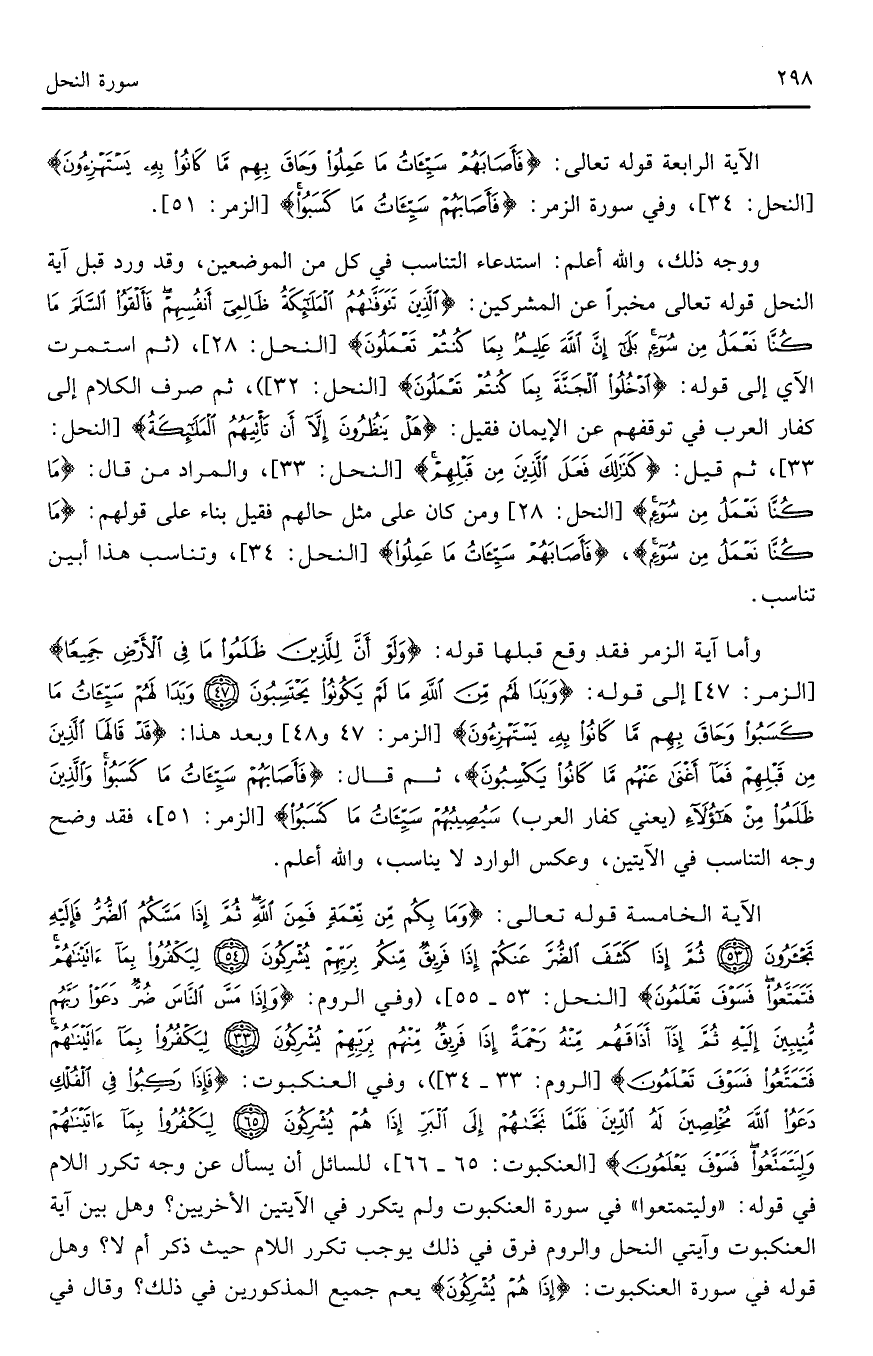 ٢٩٨
سورة النحل
الآية الرابعة قوله تعالى: ﴿فَأَصَابَهُمْ سَيِّئَاتُ مَا عَمِلُوا۟ وَحَاقَ بِهِم مَّا كَانُوا۟ بِهِۦ يَسْتَهْزِءُونَ﴾
[النحل: ٣٤]، وفي سورة الزمر: ﴿فَأَصَابَهُمْ سَيِّئَاتُ مَا كَسَبُوا۟ۚ﴾ [الزمر: ٥١].
ووجه ذلك، والله أعلم: استدعاء التناسب في كل من الموضعين، وقد ورد قبل آية
النحل قوله تعالى مخبراً عن المشركين: ﴿ٱلَّذِينَ تَتَوَفَّىٰهُمُ ٱلْمَلَـٰٓئِكَةُ ظَالِمِىٓ أَنفُسِهِمْۖ فَأَلْقَوُا۟ ٱلسَّلَمَ مَا
كُنَّا نَعْمَلُ مِن سُوٓءٍۚ بَلَىٰٓ إِنَّ ٱللَّهَ عَلِيمٌۢ بِمَا كُنتُمْ تَعْمَلُونَ﴾ [النحل: ٢٨]، (ثم استمرت
الآي إلى قوله: ﴿ٱدْخُلُوا۟ ٱلْجَنَّةَ بِمَا كُنتُمْ تَعْمَلُونَ﴾ [النحل: ٣٢])، ثم صرف الكلام إلى
كفار العرب في توقفهم عن الإيمان فقيل: ﴿هَلْ يَنظُرُونَ إِلَّآ أَن تَأْتِيَهُمُ ٱلْمَلَـٰٓئِكَةُ﴾ [النحل:
٣٣]، ثم قيل: ﴿كَذَٰلِكَ فَعَلَ ٱلَّذِينَ مِن قَبْلِهِمْۚ﴾ [النحل: ٣٣]، والمراد من قال: ﴿مَا
كُنَّا نَعْمَلُ مِن سُوٓءٍۚ﴾ [النحل: ٢٨] ومن كان على مثل حالهم فقيل بناء على قولهم: ﴿مَا
كُنَّا نَعْمَلُ مِن سُوٓءٍۚ﴾، ﴿فَأَصَابَهُمْ سَيِّئَاتُ مَا عَمِلُوا۟﴾ [النحل: ٣٤]، وتناسب هذا أبين
تناسب.
وأما آية الزمر فقد وقع قبلها قوله: ﴿وَلَوْ أَنَّ لِلَّذِينَ ظَلَمُوا۟ مَا فِى ٱلْأَرْضِ جَمِيعًا﴾
[الزمر: ٤٧] إلى قوله: ﴿وَبَدَا لَهُم مِّنَ ٱللَّهِ مَا لَمْ يَكُونُوا۟ يَحْتَسِبُونَ ٤٧ وَبَدَا لَهُمْ سَيِّئَاتُ مَا
كَسَبُوا۟ وَحَاقَ بِهِم مَّا كَانُوا۟ بِهِۦ يَسْتَهْزِءُونَ﴾ [الزمر: ٤٧ و٤٨] وبعد هذا: ﴿قَدْ قَالَهَا ٱلَّذِينَ
مِن قَبْلِهِمْ فَمَآ أَغْنَىٰ عَنْهُم مَّا كَانُوا۟ يَكْسِبُونَ﴾، ثم قال: ﴿فَأَصَابَهُمْ سَيِّئَاتُ مَا كَسَبُوا۟ۚ وَٱلَّذِينَ
ظَلَمُوا۟ مِنْ هَـٰٓؤُلَآءِ (يعني كفار العرب) سَيُصِيبُهُمْ سَيِّئَاتُ مَا كَسَبُوا۟﴾ [الزمر: ٥١]، فقد وضح
وجه التناسب في الآيتين، وعكس الوارد لا يناسب، والله أعلم.
الآية الخامسة قوله تعالى: ﴿وَمَا بِكُم مِّن نِّعْمَةٍ فَمِنَ ٱللَّهِۖ ثُمَّ إِذَا مَسَّكُمُ ٱلضُّرُّ فَإِلَيْهِ
تَجْـَٔرُونَ ٥٣ ثُمَّ إِذَا كَشَفَ ٱلضُّرَّ عَنكُمْ إِذَا فَرِيقٌ مِّنكُم بِرَبِّهِمْ يُشْرِكُونَ ٥٤ لِيَكْفُرُوا۟ بِمَآ ءَاتَيْنَـٰهُمْۚ
فَتَمَتَّعُوا۟ۖ فَسَوْفَ تَعْلَمُونَ﴾ [النحل: ٥٣ ـ ٥٥]، (وفي الروم: ﴿وَإِذَا مَسَّ ٱلنَّاسَ ضُرٌّ دَعَوْا۟ رَبَّهُم
مُّنِيبِينَ إِلَيْهِ ثُمَّ إِذَآ أَذَاقَهُم مِّنْهُ رَحْمَةً إِذَا فَرِيقٌ مِّنْهُم بِرَبِّهِمْ يُشْرِكُونَ ٣٣ لِيَكْفُرُوا۟ بِمَآ ءَاتَيْنَـٰهُمْۚ
فَتَمَتَّعُوا۟ فَسَوْفَ تَعْلَمُونَ﴾ [الروم: ٣٣ ـ ٣٤])، وفي العنكبوت: ﴿فَإِذَا رَكِبُوا۟ فِى ٱلْفُلْكِ
دَعَوُا۟ ٱللَّهَ مُخْلِصِينَ لَهُ ٱلدِّينَ فَلَمَّا نَجَّىٰهُمْ إِلَى ٱلْبَرِّ إِذَا هُمْ يُشْرِكُونَ ٦٥ لِيَكْفُرُوا۟ بِمَآ ءَاتَيْنَـٰهُمْ
وَلِيَتَمَتَّعُوا۟ۖ فَسَوْفَ يَعْلَمُونَ﴾ [العنكبوت: ٦٥ ـ ٦٦]، للسائل أن يسأل عن وجه تكرر اللام
في قوله: «وليتمتعوا» في سورة العنكبوت ولم يتكرر في الآيتين الأخريين؟ وهل بين آية
العنكبوت وآيتي النحل والروم فرق في ذلك يوجب تكرر اللام حيث ذكر أم لا؟ وهل
قوله في سورة العنكبوت: ﴿إِذَا هُمْ يُشْرِكُونَ﴾ يعم جميع المذكورين في ذلك؟ وقال في